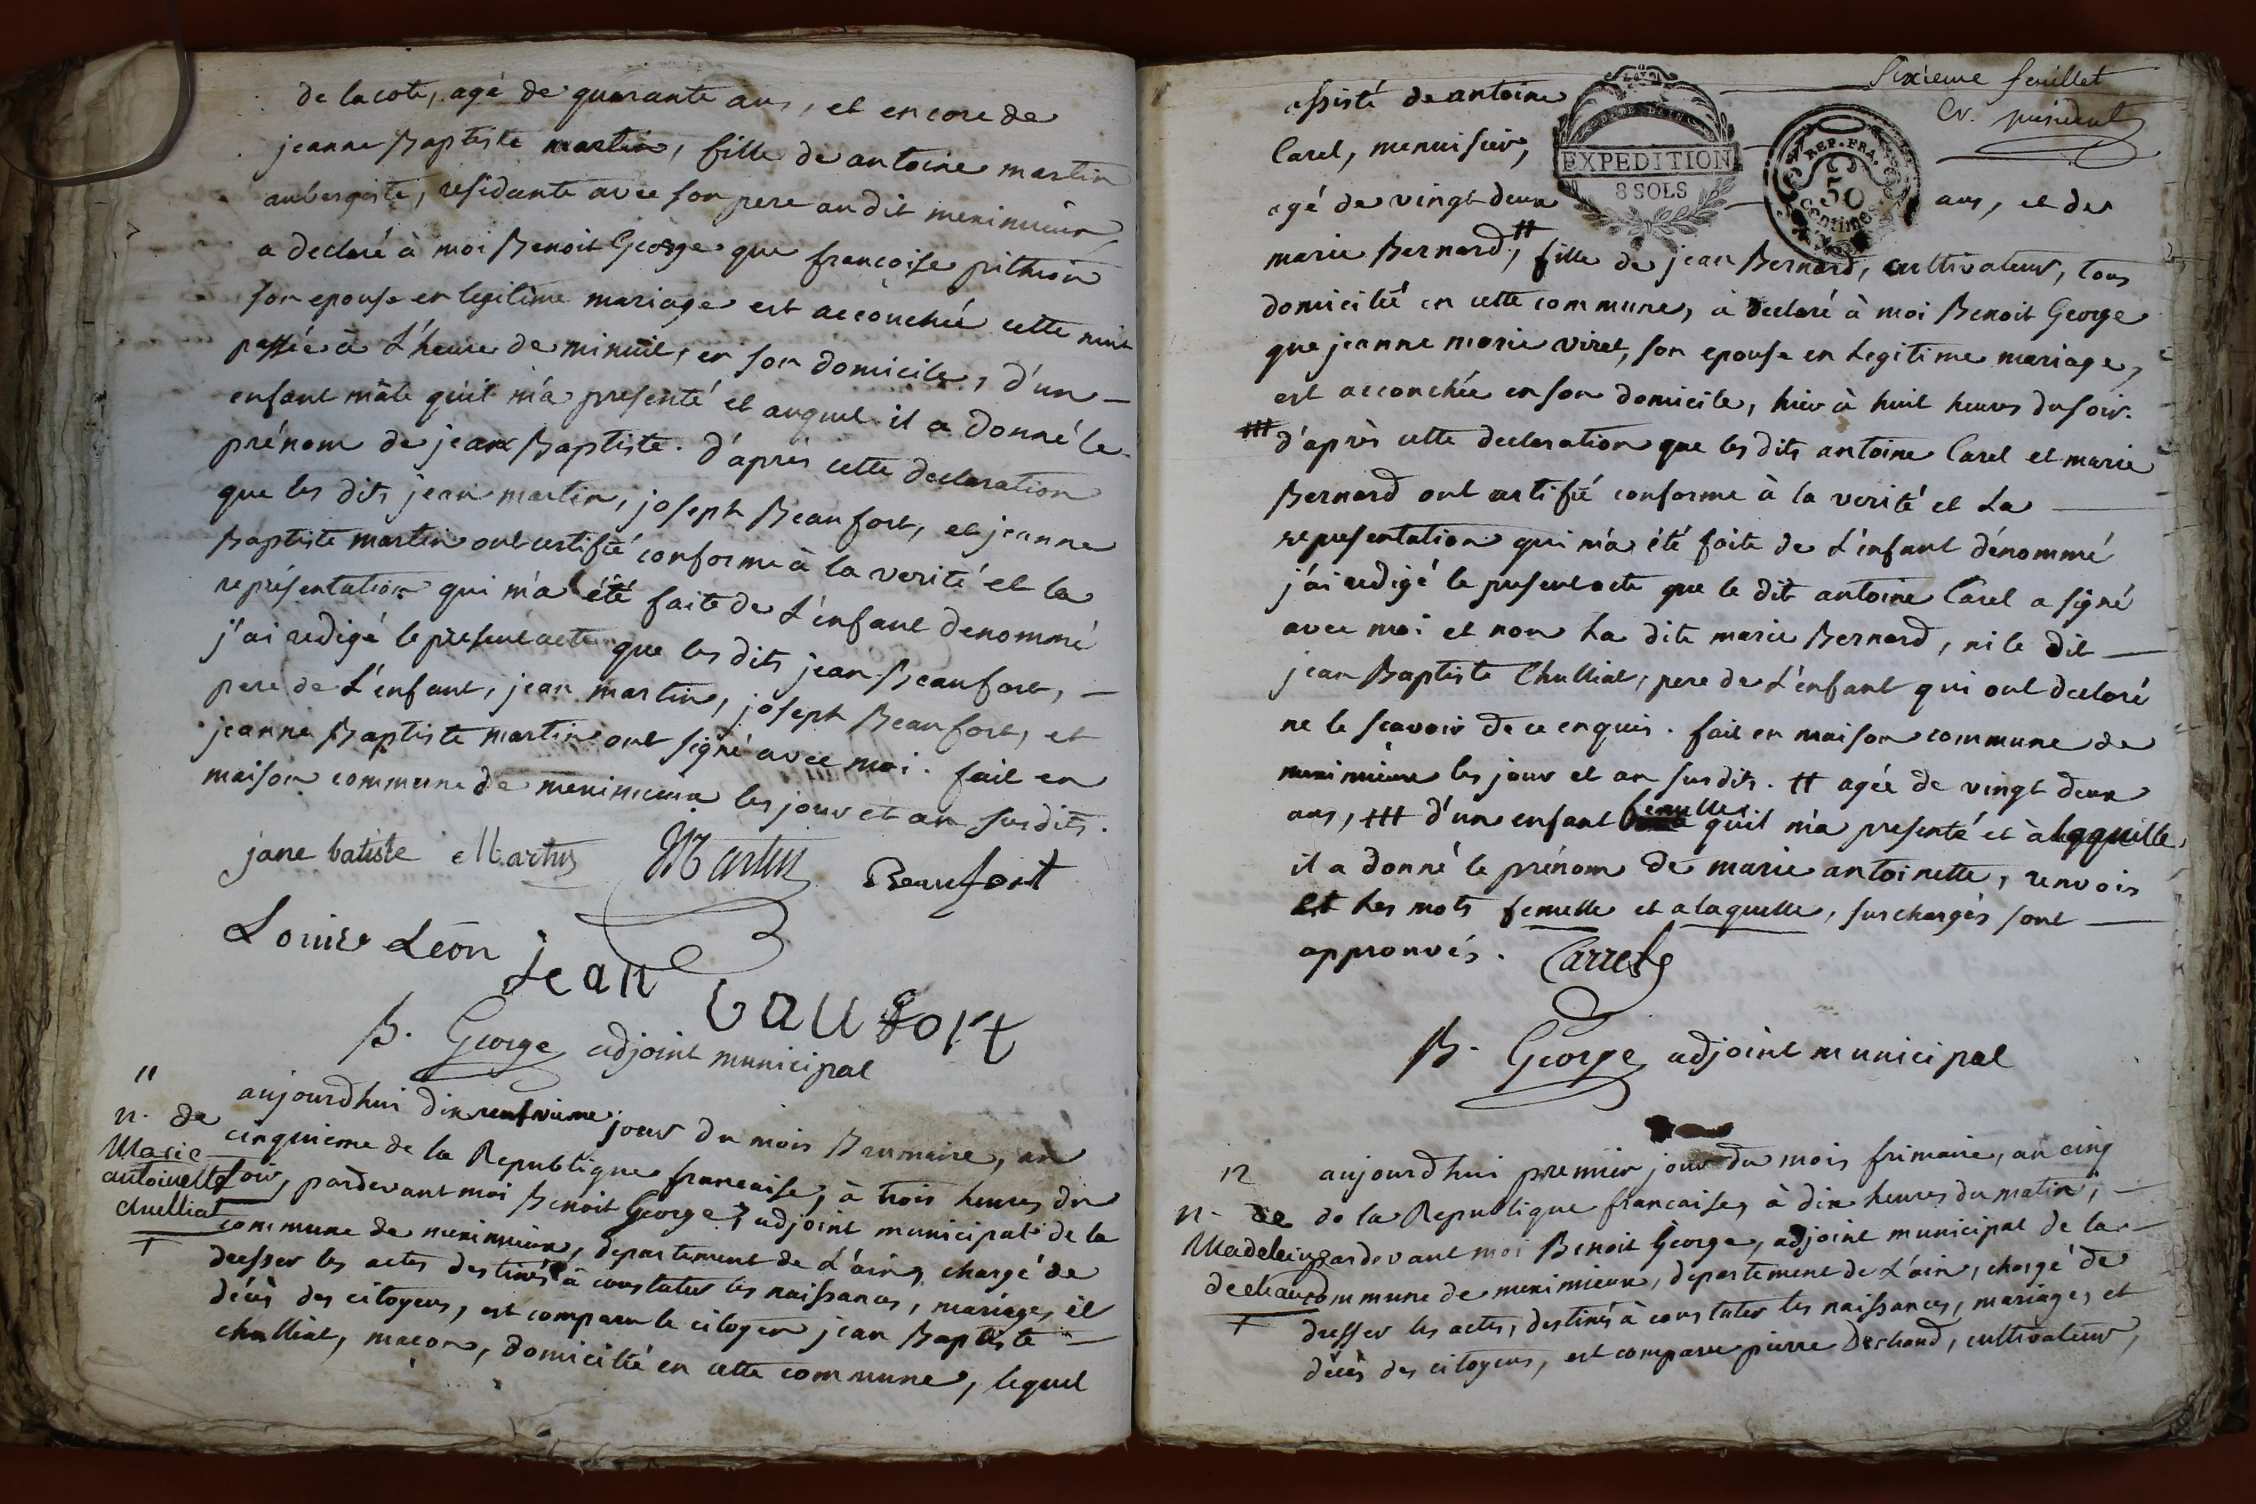 de lacote, agé de quarante ans, et encore de
jeanne Baptiste martin, fille de antoine martin
aubergiste, residante avec son pere audit meximieux,
a declaré à moi Benoit George que francoise pithion
son epouse en legitime mariage est accouchée cette nuit
passée à L'heure de minuit, en son domicile, d'un —
enfant mâle qu'il m'a presenté et auquel il a donné le
prénom de jean Baptiste. d'après cette declaration
que les dits jean martin, joseph Beaufort, et jeanne
Baptiste martin ont certifié conforme à la verité et la
représentation qui m'a été faite de L'enfant denommé
j'ai redigé le present acte que les dits jean Beaufort, —
pere de L'enfant, jean martin, joseph Beaufort, et
jeanne Baptiste martin ont signé avec moi. fait en
maison commune de meximieux les jour et an susdits.
jane batiste Martin Martin Beaufort
Louise Léon jean baufort
B. George adjoint municipal
11
n. de
Marie
antoinette
chulliat
aujourdhui dix neufvieme jour du mois Brumaire, an
cinquieme de la Republique francaise, à trois heures du
soir, pardevant moi Benoit George, adjoint municipal de la
commune de meximieux, departement de L'ain, chargé de
dresser les actes destinés à constater les naissances, mariages et
décès des citoyens, est comparu le citoyen jean Baptiste —
chulliat, macon, domicilié en cette commune, lequel
Sixieme feuillet
Cr. président
EXPEDITION
8 SOLS
REP. FRA.
50
centimes
assisté de antoine
Carel, menuisier,
agé de vingt deux ans, et de
marie Bernard, # fille de jean Bernard, cultivateur, tous
domicilié en cette commune, à declaré à moi Benoit George
que jeanne marie viret, son epouse en Legitime mariage,
est accouchée en son domicile, hier à huit heures du soir.
### d'après cette declaration que les dits antoine Carel et marie
Bernard ont certifié conforme à la verité et La —
representation qui m'a été faite de L'enfant dénommé
j'ai redigé le present acte que le dit antoine Carel a signé
avec moi et non La dite marie Bernard, ni le dit —
jean Baptiste Chulliat, pere de L'enfant qui ont declaré
ne le scavoir de ce enquis. fait en maison commune de
meximieux les jour et an susdits. # agée de vingt deux
ans, ### d'un enfant femelle qu'il m'a presenté et àlaquelle
il a donné le prénom de marie antoinette, renvois
et Les mots femelle et alaquelle, surchargés sont —
approuvés. Carrel
B. George adjoint municipal
12
n. de
Madelein
dechaud
aujourdhui premier jour du mois frimaire, an cinq
de la Republique francaise, à dix heures du matin, —
pardevant moi Benoit George, adjoint municipal de la —
commune de meximieux, departement de L'ain, chargé de
dresser les actes, destinés à constater les naissances, mariages et
décès des citoyens, est comparu pierre Dechaud, cultivateur,